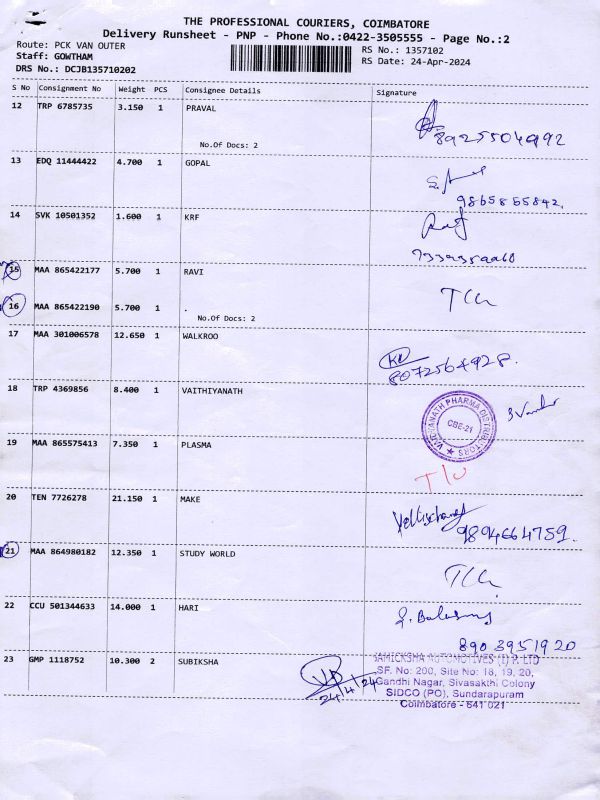 THE PROFESSIONAL COURIERS, COIMBATORE
Delivery Runsheet - PNP - Phone No.:0422-3505555 - Page No.:2
Route: PCK VAN OUTER RS No.: 1357102
Staff: GOWTHAM RS Date: 24-Apr-2024
DRS No.: DCJB135710202
S No Consignment No Weight PCS Consignee Details Signature
12 TRP 6785735 3.150 1 PRAVAL
No.Of Docs: 2 8925504992
13 EDQ 11444422 4.700 1 GOPAL
9865855842.
14 SVK 10501352 1.600 1 KRF
15 MAA 865422177 5.700 1 RAVI
16 MAA 865422190 5.700 1 .
No.Of Docs: 2
17 MAA 301006578 12.650 1 WALKROO
8072564928.
18 TRP 4369856 8.400 1 VAITHIYANATH
VAIDYANATH PHARMA DISTRIBUTORS
CBE-21
19 MAA 865575413 7.350 1 PLASMA
20 TEN 7726278 21.150 1 MAKE
9894664759.
21 MAA 864980182 12.350 1 STUDY WORLD
22 CCU 501344633 14.000 1 HARI
8903951920
23 GMP 1118752 10.300 2 SUBIKSHA
24/4/24
SAMICKSHA AUTOMOTIVES (I) P. LTD
SF. No: 200, Site No: 18, 19, 20,
Gandhi Nagar, Sivasakthi Colony
SIDCO (PO), Sundarapuram
Coimbatore - 641 021